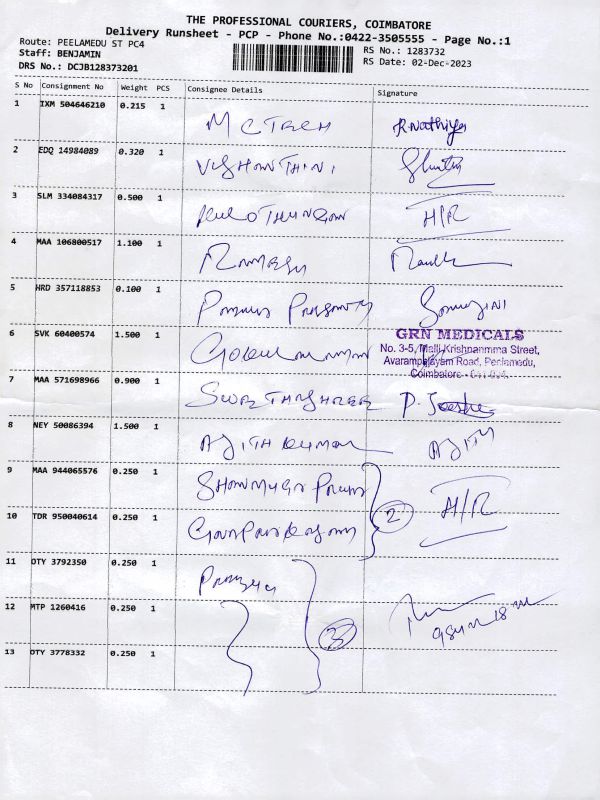 THE PROFESSIONAL COURIERS, COIMBATORE
Delivery Runsheet - PCP - Phone No.:0422-3505555 - Page No.:1
Route: PEELAMEDU ST PC4
RS No.: 1283732
Staff: BENJAMIN
RS Date: 02-Dec-2023
DRS No.: DCJB128373201
S No Consignment No Weight PCS Consignee Details Signature
1 IXM 504646210 0.215 1
MCTRCH R.Nathiya
2 EDQ 14984089 0.320 1
VISHONTHINI
3 SLM 334084317 0.500 1
KULOTHUNGAN H/R
4 MAA 106800517 1.100 1
RAMESH
5 HRD 357118853 0.100 1
6 SVK 60400574 1.500 1
GRN MEDICALS
No. 3-5, Malli Krishnanmma Street,
Avarampalayam Road, Peelamedu,
Coimbatore
GOKUL
7 MAA 571698966 0.900 1
8 NEY 50086394 1.500 1
AJITH KUMAR AJITH
9 MAA 944065576 0.250 1
H/R
10 TDR 950040614 0.250 1
2
11 OTY 3792350 0.250 1
12 MTP 1260416 0.250 1
3
13 OTY 3778332 0.250 1